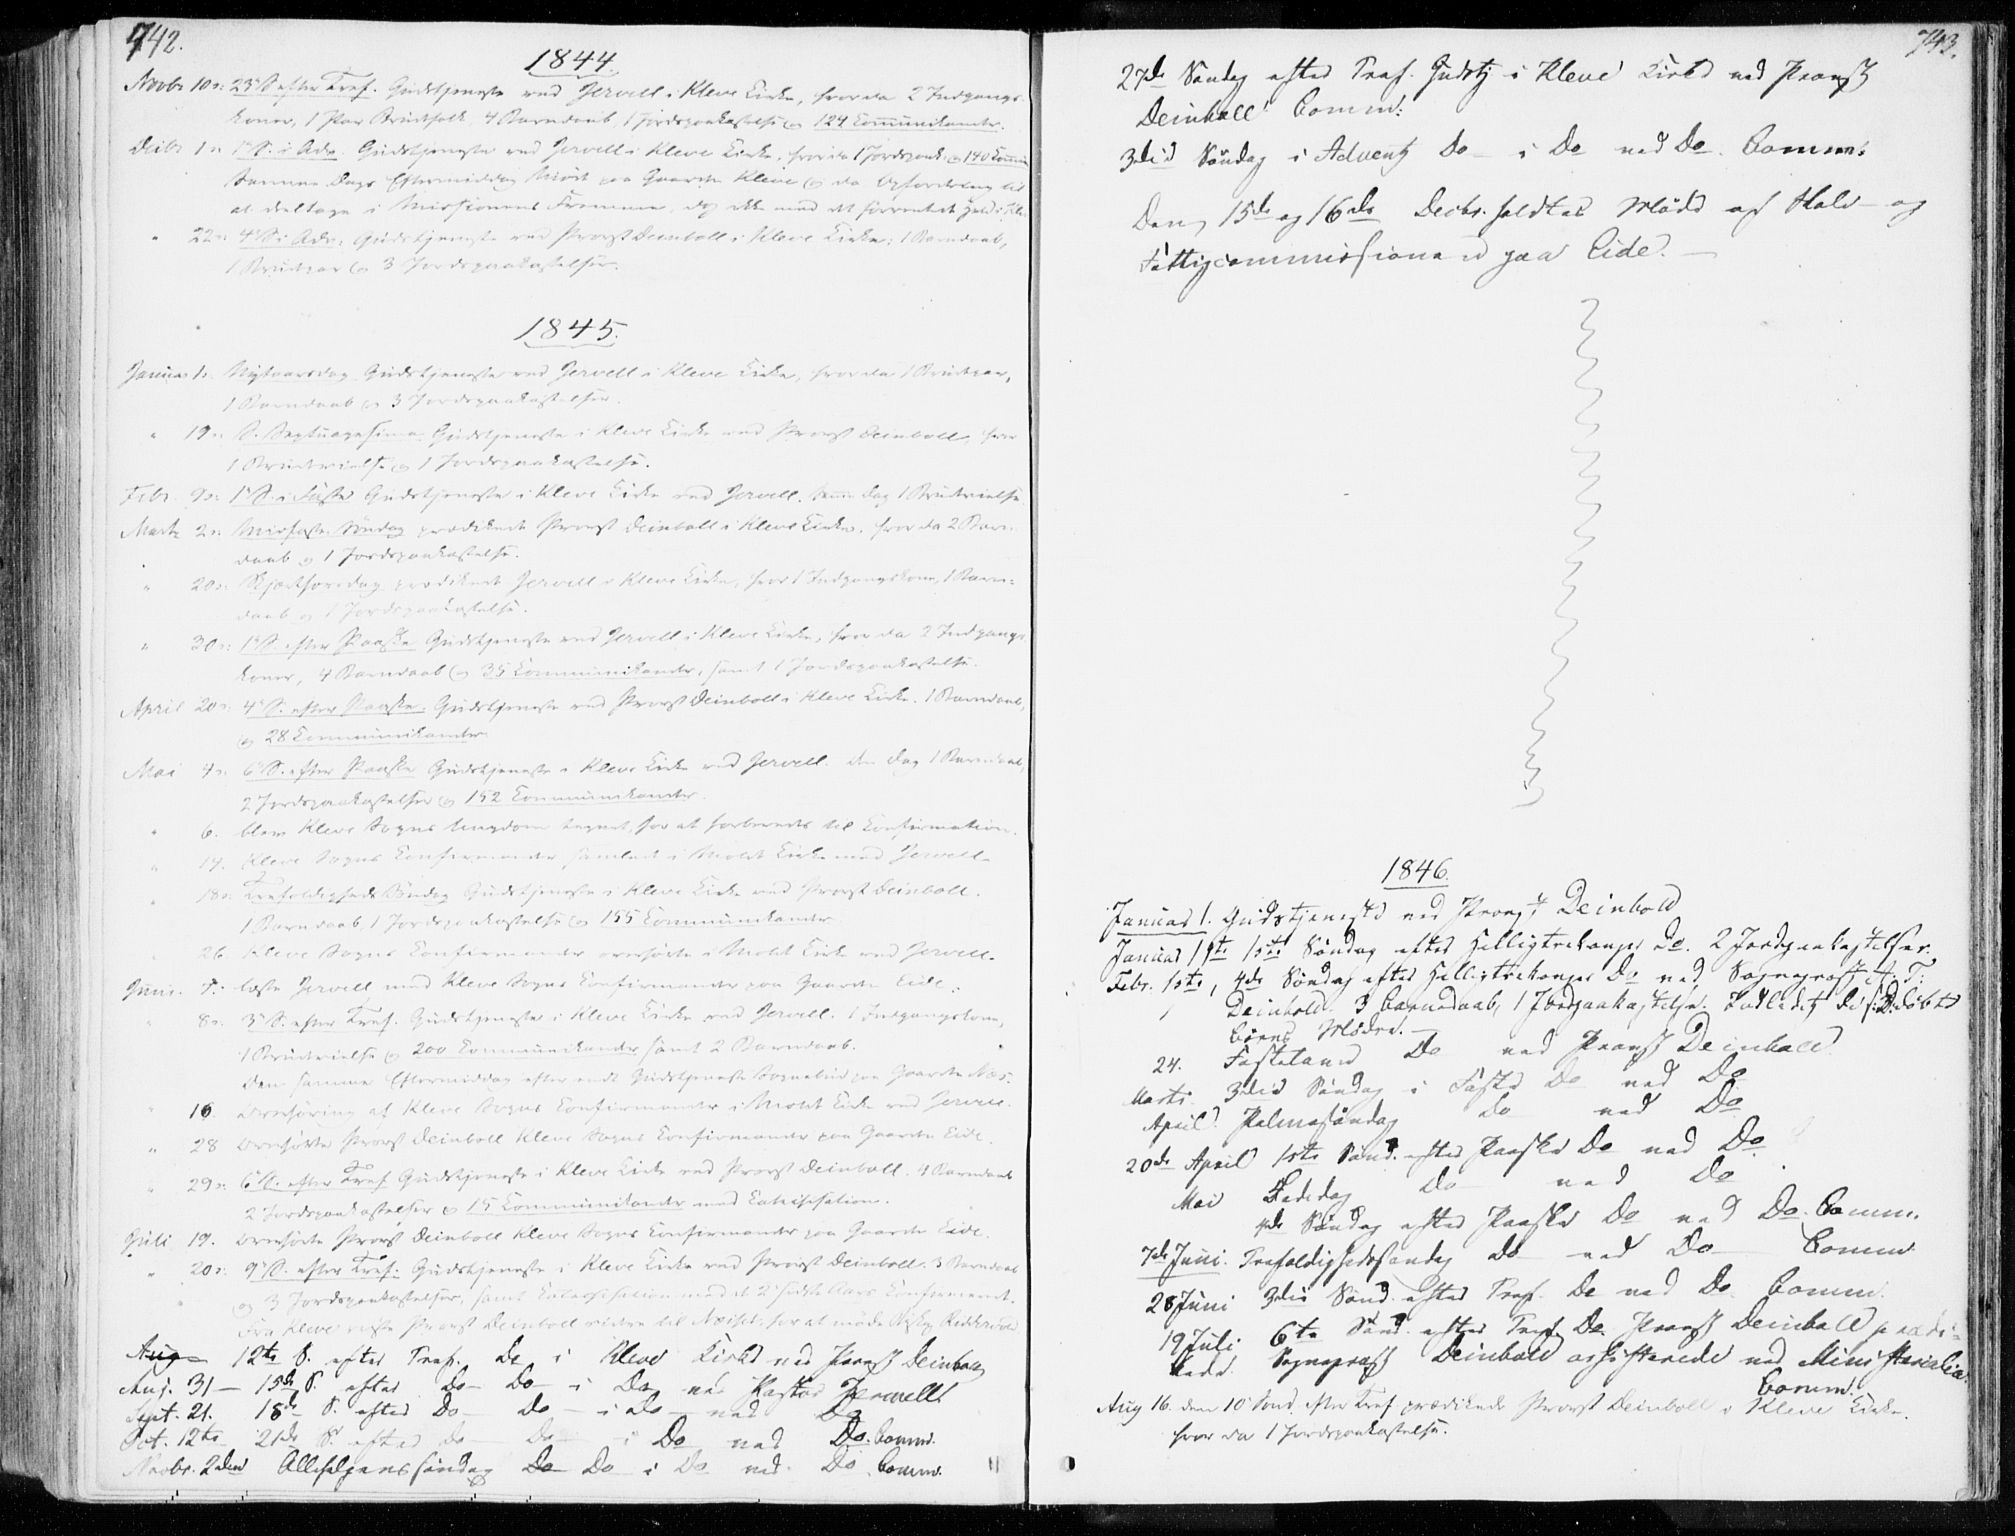 742.
1844.
Novbr 10n: 23 S. efter Tref. Gudstjeneste ved Jervell i Kleve Kirke, hvor da 2 Indgangs-
koner, 1 Par Brudefolk, 4 Barnedaab, 1 Jordspaakastelse og 124 Communikanter.
Decbr 1n: 1 S. i Adv. Gudstjeneste ved Jervell i Kleve Kirke, hvor da 1 Jordspaak. og 140 Commun
Samme Dags Eftermiddag Møde paa Gaarden Kleve og da Opfordring til
at deltage i Missionens Fremme, dog ikke med det forventede
" 22n: 4 S. i Adv: Gudstjeneste ved Provst Deinboll i Kleve Kirke; 1 Barndaab,
1 Brudepar og 3 Jordspaakastelser.
1845.
Januar 1n: Nytaarsdag Gudstjeneste ved Jervell i Kleve Kirke, hvor da 1 Brudepar,
1 Barndaab og 3 Jordspaakastelser.
" 19n: S. Septuagesima Gudstjeneste i Kleve Kirke ved Provst Deinboll, hvor
1 Brudevielse og 1 Jordspaakastelse.
Febr. 9n: 1 S. i Faste Gudstjeneste i Kleve Kirke ved Jervell. samme Dag 1 Brudevielse
Marts 2n: Midfaste Søndag prædikede Provst Deinboll i Kleve Kirke, hvor da 2 Barn-
daab og 1 Jordspaakastelse.
" 20n: Skjærthorsdag prædikede Jervell i Kleve Kirke, hvor 1 Indgangskone, 1 Barn-
daab og 1 Jordspaakastelse.
" 30n: 1 S. efter Paaske Gudstjeneste ved Jervell i Kleve Kirke, hvor da 2 Indgangs
koner, 4 Barndaab og 35 Communikanter, samt 1 Jordspaakastelse.
April 20n: 4 S. efter Paaske. Gudstjeneste ved Provst Deinboll i Kleve Kirke. 1 Barndaab,
og 28 Communikanter.
Mai 4n: 6 S. efter Paaske Gudstjeneste i Kleve Kirke ved Jervell. den Dag 1 Barndaab,
2 Jordspaakastelser og 152 Communikanter.
" 6. blev Kleve Sogns Ungdom tegnet, for at forberedes til Confirmation.
" 14. Kleve Sogns Confirmander samlede i Molde Kirke med Jervell.
" 18n: Trefoldigheds Søndag Gudstjeneste i Kleve Kirke ved Provst Deinboll.
1 Barndaab, 1 Jordspaakastelse og 155 Communikanter
" 26. Kleve Sogns Confirmander overhørte i Molde Kirke ved Jervell.
Juni. 7.: læste Jervell med Kleve Sogns Confirmander paa Gaarden Eide.
" 8n: 3 S. efter Tref. Gudstjeneste i Kleve Kirke ved Jervell. 1 Indgangskone,
1 Brudevielse og 200 Communikanter samt 2 Barndaab.
Den samme Eftermiddag efter endt Gudstjeneste Sognebud paa Gaarden Næs.
" 16 Overhøring af Kleve Sogns Confirmander i Molde Kirke ved Jervell.
" 28 overhørte Provst Deinboll Kleve Sogns Confirmander paa Gaarden Eide.
" 29n: 6 S. efter Tref. Gudstjeneste i Kleve Kirke ved Provst Deinboll. 4 Barndaab
2 Jordspaakastelser og 15 Communikanter med Catechisation.
Juli 19. overhørte Provst Deinboll Kleve Sogns Confirmander paa Gaarden Eide.
" 20n: 9 S. efter Tref: Gudstjeneste i Kleve Kirke ved Provst Deinboll. 3 Barndaab
og 3 Jordspaakastelser, samt Catechisation med de 2 sidste Aars Confirmerede.
Fra Kleve reiste Provst Deinboll videre til Næsset, for at møde Biskop Riddervold
Aug 12te S. efter Tref. Do i Kleve Kirke ved Provst Deinboll
Aug. 31 – 15de S. efter Do Do i Do ved Pastor Jerwell
Sept. 21. 18de S. efter Do Do i Do ved Do
Oct. 12te 21de S. efter Do Do i Do ved Do. Comm.
Novbr. 2den Allehelgenssøndag Do Do i Do ved Do Comm.
743.
27de Søndag efter Tref. Gudstj i Kleve Kirke ved Provst
Deinboll Comm:
3die Søndag i Advent Do i Do ved Do. Comm:
Den 15de og 16de Decbr. holdtes Møde af Skole- og
Fattigcommissionen paa Eide. —
1846.
Januar 1. Gudstjeneste ved Provst Deinboll
Januar 11te 1ste Søndag efter Helligtrekonger Do. 2 Jordpaakastelser.
Febr. 1ste, 4de Søndag efter Helligtrekonger Do ved Sogneprest
Deinboll 3 Barnedaab, 1 Jordpaakastelse. Indledet de
Børns Mødre. —
24. Fastelavn Do ved Provst Deinboll
Marts. 3die Søndag i Faste Do ved Do
April Palmesøndag Do ved Do
20de April 1ste Sønd. efter Paaske Do ved Do.
Mai Bededag Do ved Do
4de Søndag efter Paaske Do ved Do. Comm.
7de Juni. Trefoldighedssøndag Do ved Do Comm
28 Juni 3die Sønd. efter Tref. Do ved Do Comm.
19 Juli 6te Sønd. efter Tref. Do. Provst Deinboll prædi-
kede. Sogneprest Deinboll assisterede ved Ministerialia.
Comm.
Aug 16. den 10 Sønd. efter Tref. prædikede Provst Deinboll i Kleve Kirke.
hvor da 1 Jordspaakastelse.